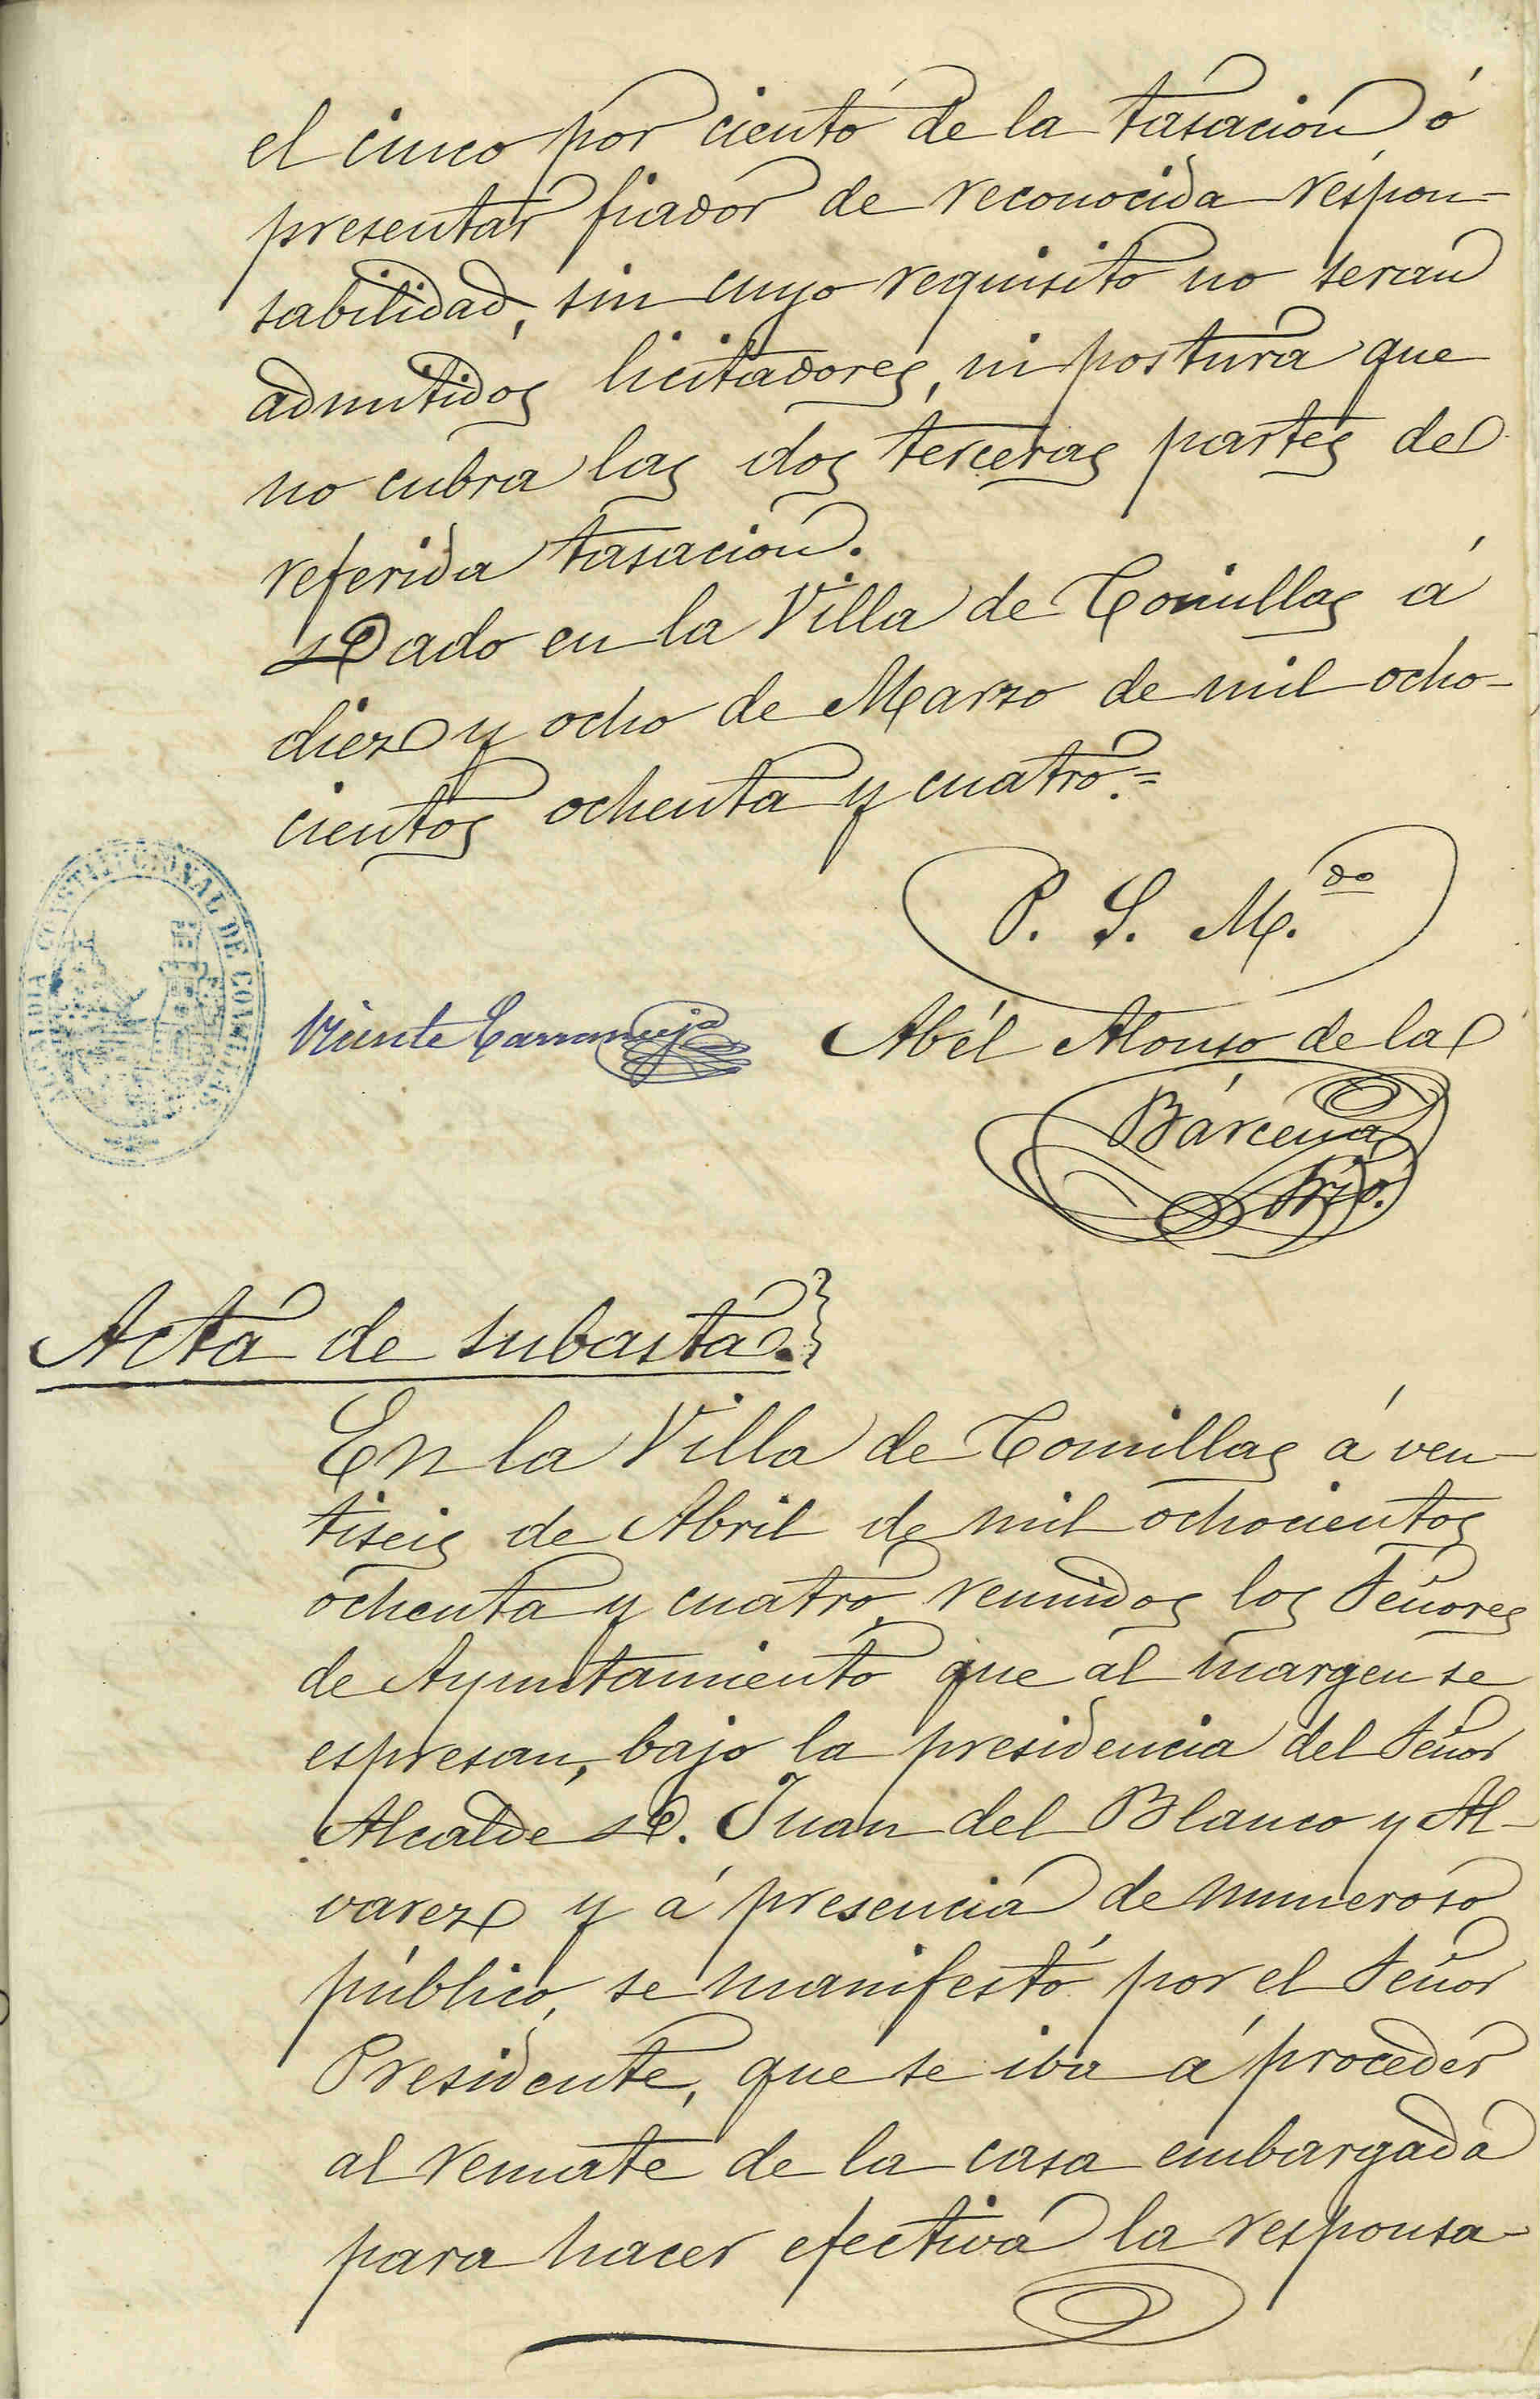 el cinco por ciento de la tasacion ó
presentar fiador de reconocida respon=
sabilidad, sin cuyo requisito no seran
admitidos licitadores, ni postura que
no cubra las dos terceras partes de
referida tasacion.
Dado en la Villa de Comillas á
diez y ocho de Marzo de mil ocho-
cientos ochenta y cuatro.=
P. S. M.do
ALCALDIA CONSTITUCIONAL DE COMILLAS
Vicente Abél Alonso de la
Bárcena
Srio.
Acta de subasta.
En la Villa de Comillas á ven-
tiseis de Abril de mil ochocientos
ochenta y cuatro, reunidos los Señores
de Ayuntamiento que al margen se
espresan, bajo la presidencia del Señor
Alcalde D. Juan del Blanco y Al-
varez y á presencia de numeroso
público, se manifestó por el Señor
Presidente, que se iba á proceder
al remate de la casa embargada
para hacer efectiva la responsa-